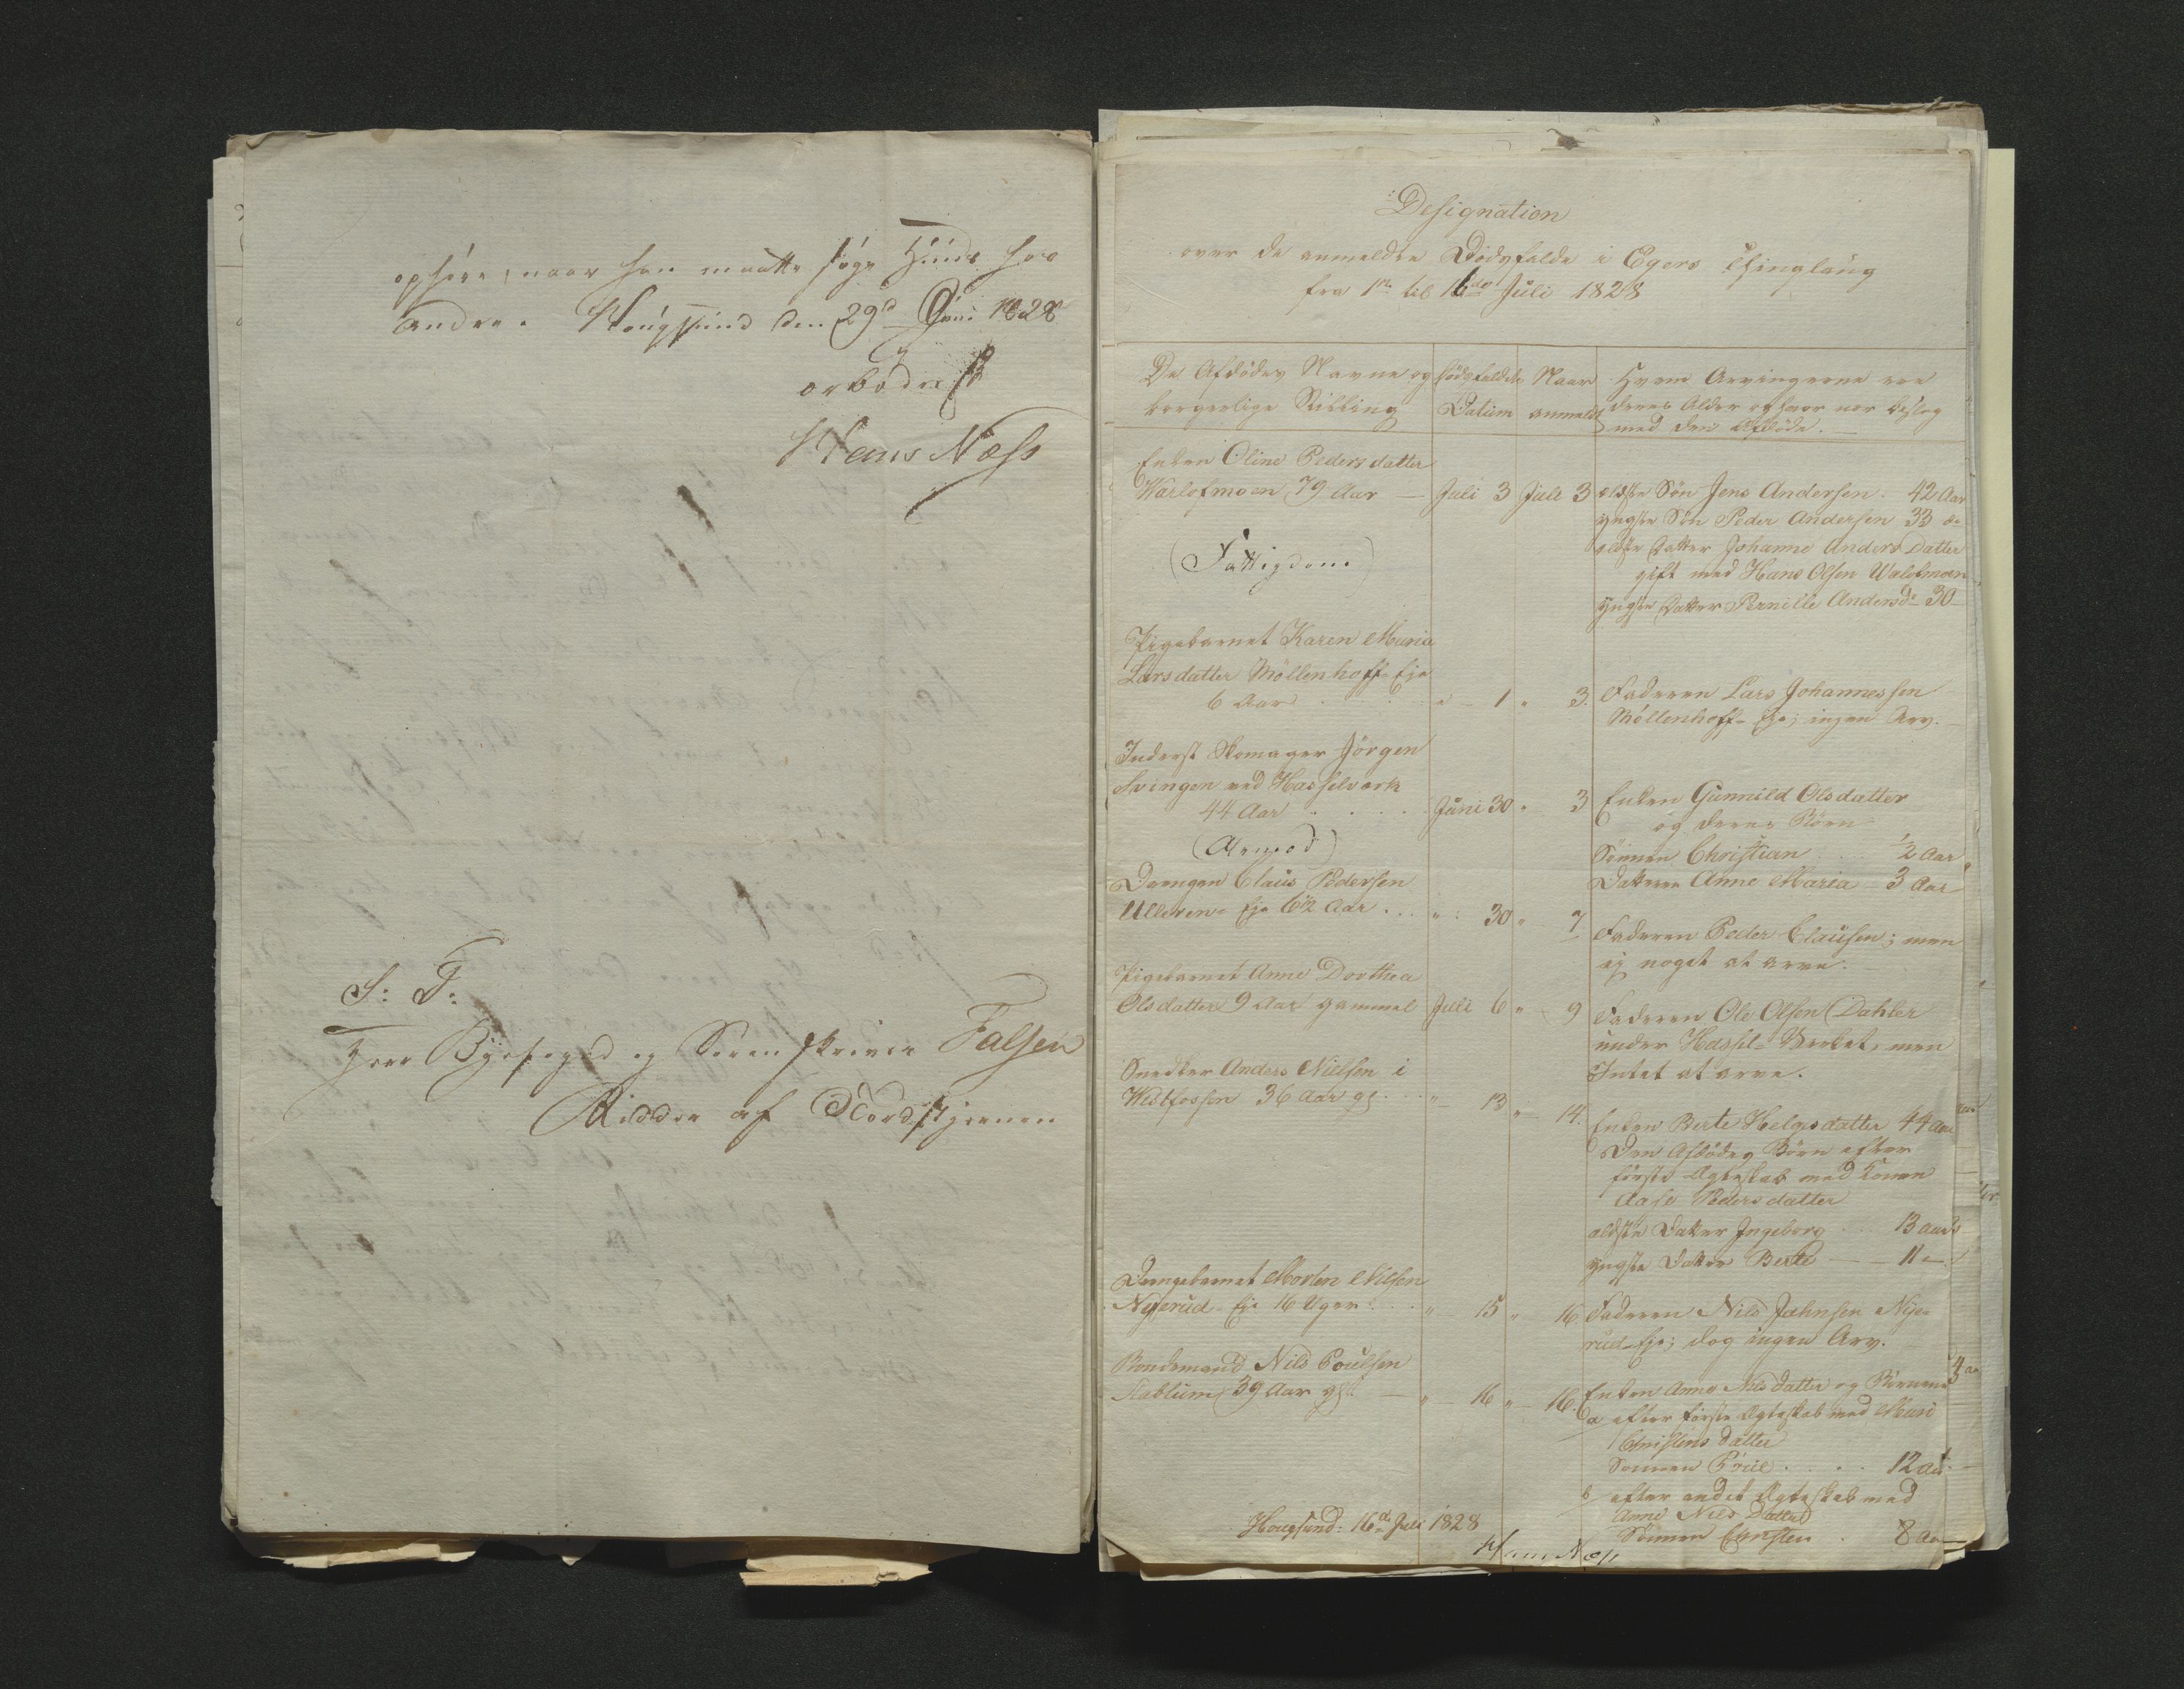 ophøre, naar han maatte søge Huus hos
andre. Hougsund den 29d Juni 1828
ærbødigst
Hans Næss
S: T:
Herr Byefoged og Sorenskriver Falsen
Ridder af Nordstjernen
Designation
over de anmeldte Dødsfalde i Egers Thinglaug
fra 1ste til 16de Juli 1828
De Afdødes Navne og
borgerlige Stilling
Dødsfaldets
Datum
Naar
anmeldt
Hvem Arvingerne ere
deres Alder og hvor nær beslæg
med den Afdøde.
Enken Oline Pedersdatter
Warlofmoen 79 Aar — Juli 3 Juli 3
(Fattigdom)
ældste Søn Jens Andersen. 42 Aar
yngste Søn Peder Andersen 33 do
ældste Datter Johanne Anders Datter
gift med Hans Olsen Walofmoen
yngste Datter Pernille Andersd. 30
Pigebarnet Karen Maria
Larsdatter Møllenhoff-Eje
6 Aar . . . . " - 1 " 3.
Faderen Lars Johannessen
Møllenhoff-Eje; ingen Arv.
Inderst Skomager Jörgen
Svingen ved Hasselværk
44 Aar . . . . Juni 30 " 3
(Armod)
Enken Gunnild Olsdatter
og deres Börn
Sönnen Christian ½ Aar
Datteren Anne Maria - 3 Aar
Drengen Claus Pedersen
Ulleren-Eje 6½ Aar . . . " 30 " 7
Faderen Peder Clausen; men
ej noget at arve.
Pigebarnet Anne Dorthea
Olsdatter 9 Aar gammel Juli 6 " - 9
Faderen Ole Olsen Dahler
under Hassel-Værket, men
Intet at arve.
Snedker Anders Nielsen i
Westfossen 36 Aar gl. . . " - 13 " - 14.
Enken Berte Helgesdatter 44 Aar
Den Afdødes Börn efter
förste Ægteskab med Konen
Aase Pedersdatter
ældste Datter Ingeborg . . . 13 aar
yngste Datter Berte — 11 "
Drengebarnet Morten Nilsen
Nyerud-Eje 16 Uger . . . " 15 " 16.
Faderen Nils Jahnsen Nye-
rud-Eje; dog ingen Arv.
Bondemand Nils Poulsen
Stablum 39 Aar gl. — " - 16 " - 16.
Enken Anne Nils Datter og Börnene
a efter förste Ægteskab med Mari
Christens Datter
Sønnen Poul . . . . 12 Aar
b efter andet Ægteskab med
Anne Nils Datter
Sönnen Christen . 8 Aar
Hougsund: 16de Juli 1828
Hans Næss